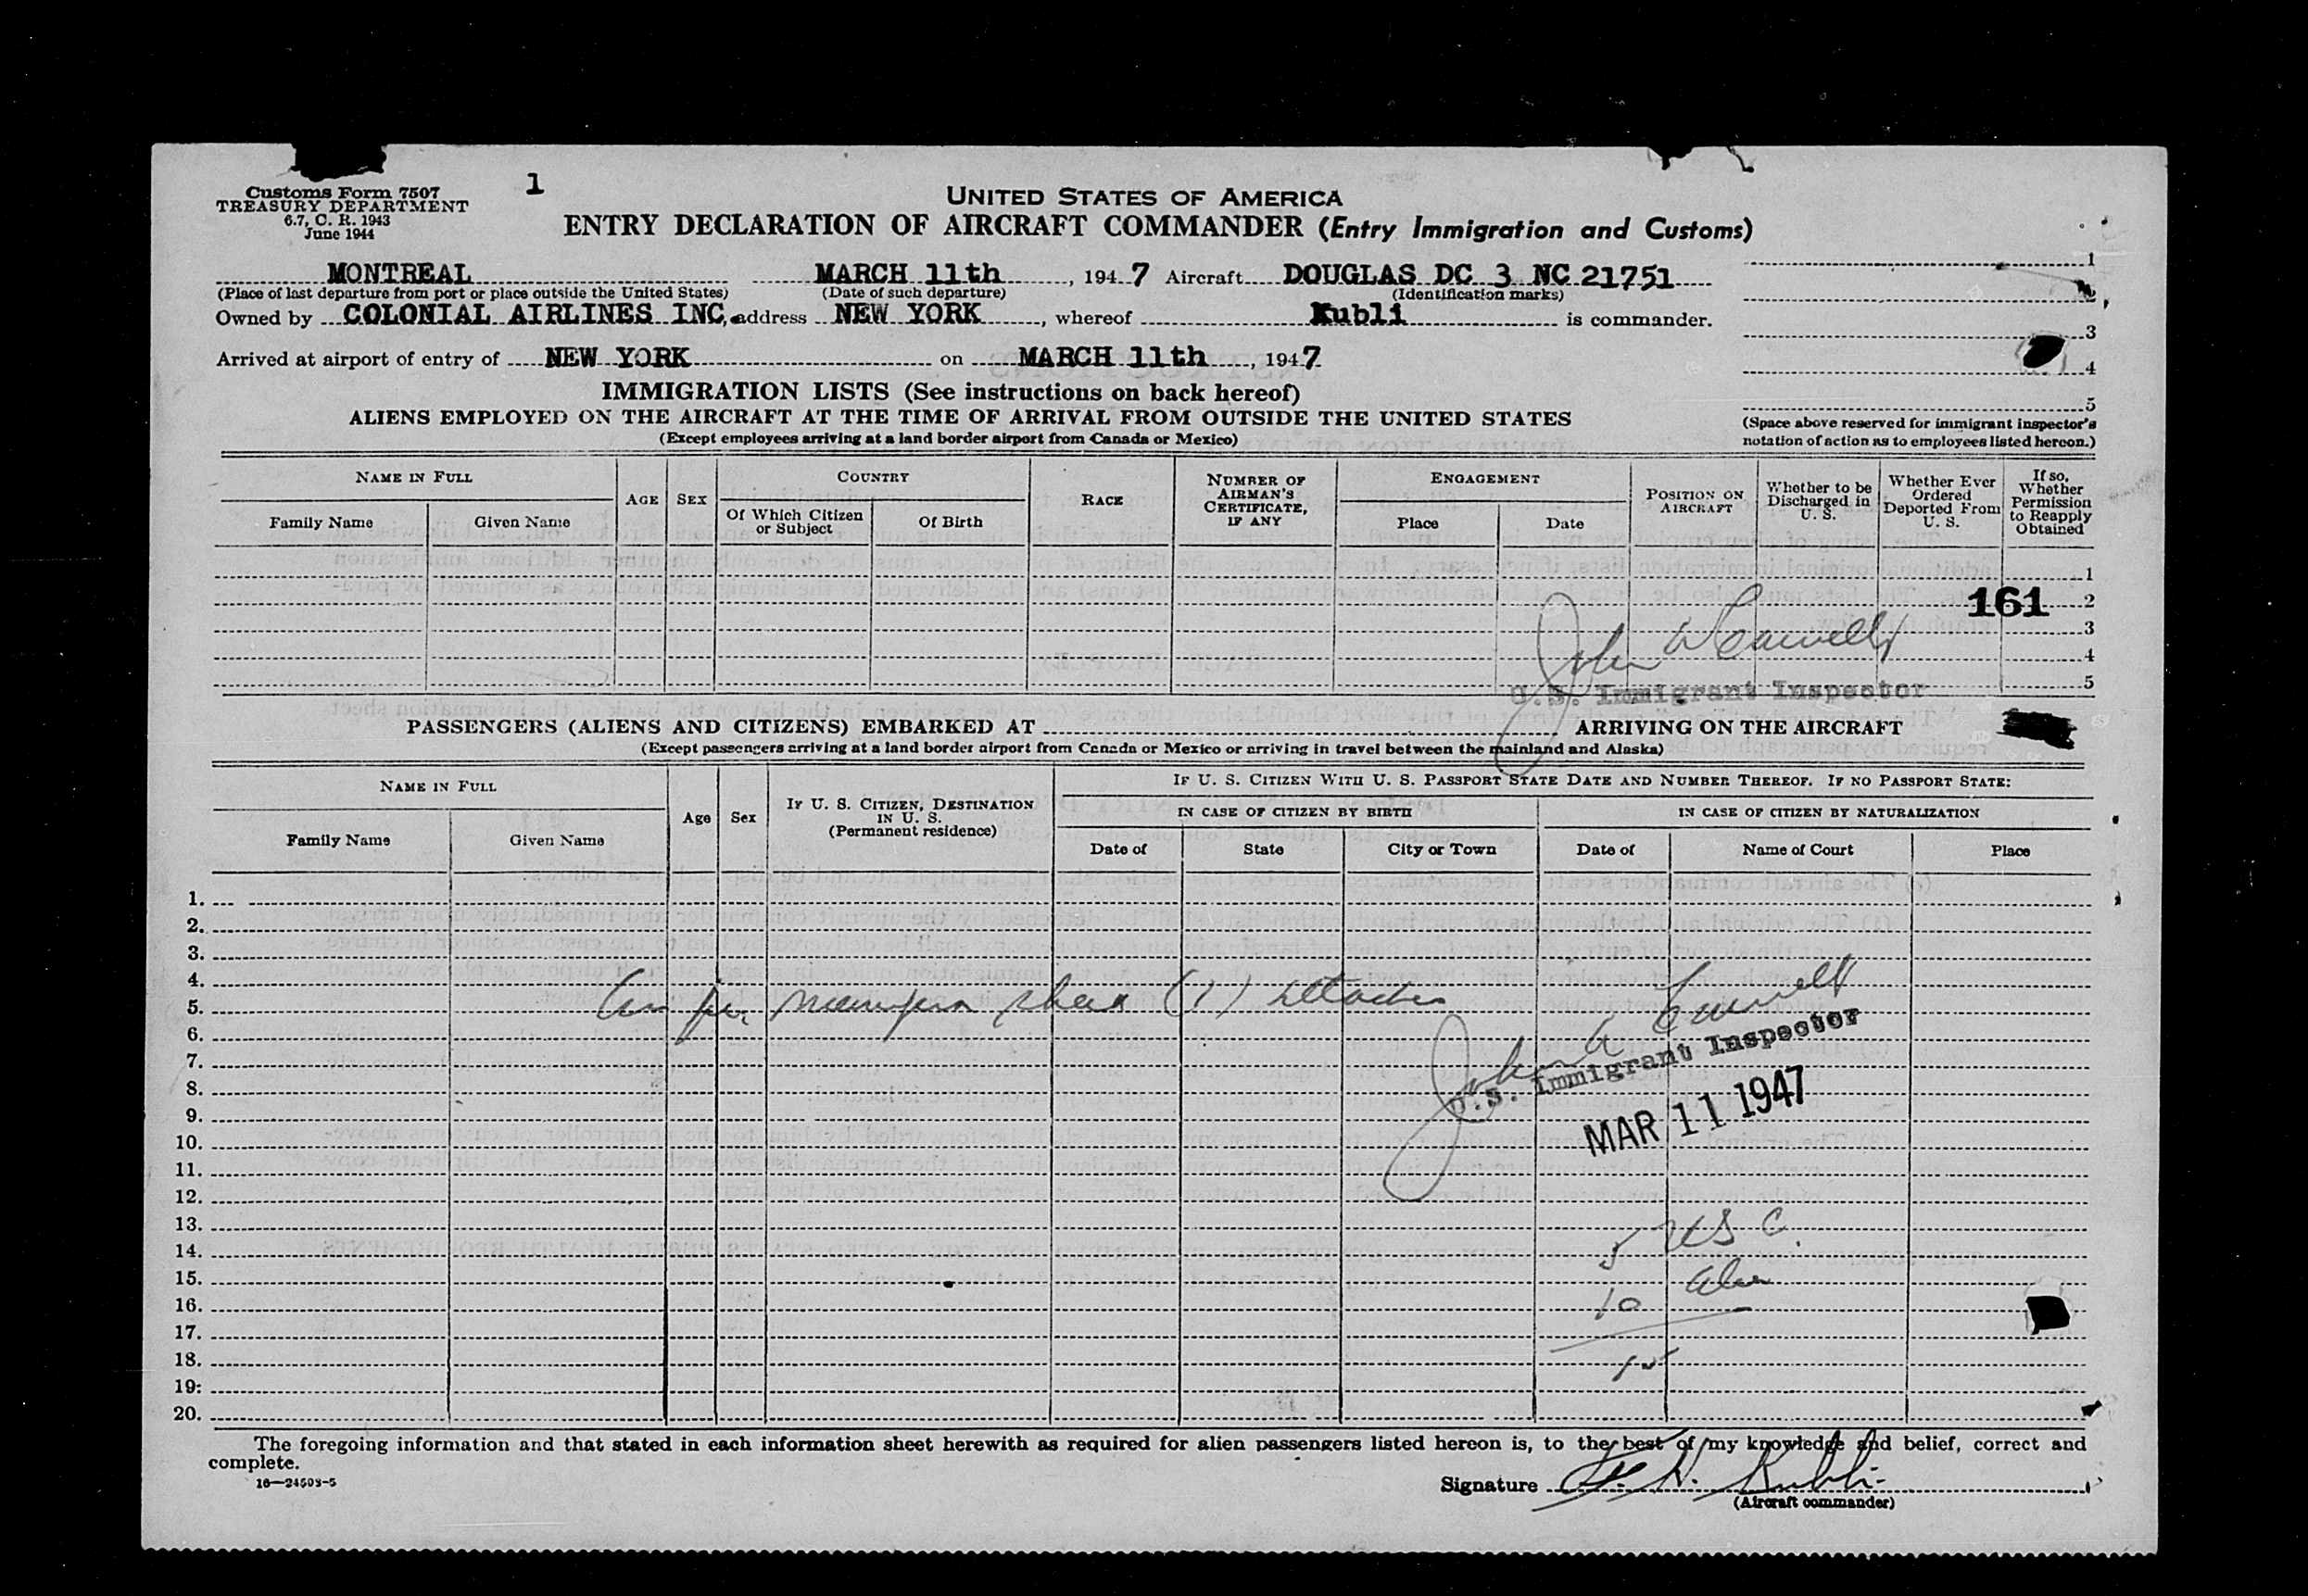 Customs Form 7507
TREASURY DEPARTMENT
6.7, C. R. 1943
June 1944
1
UNITED STATES OF AMERICA
ENTRY DECLARATION OF AIRCRAFT COMMANDER (Entry Immigration and Customs)
MONTREAL MARCH 11th, 1947 Aircraft DOUGLAS DC 3 NC 21751
(Place of last departure from port or place outside the United States) (Date of such departure) (Identification marks)
Owned by COLONIAL AIRLINES INC, address NEW YORK, whereof Kubli is commander.
Arrived at airport of entry of NEW YORK on MARCH 11th, 1947
1
2
3
4
5
(Space above reserved for immigrant inspector's
notation of action as to employees listed hereon.)
IMMIGRATION LISTS (See instructions on back hereof)
ALIENS EMPLOYED ON THE AIRCRAFT AT THE TIME OF ARRIVAL FROM OUTSIDE THE UNITED STATES
(Except employees arriving at a land border airport from Canada or Mexico)
NAME IN FULL
Family Name Given Name
AGE SEX
COUNTRY
Of Which Citizen or Subject Of Birth
RACE
NUMBER OF AIRMAN'S CERTIFICATE, IF ANY
ENGAGEMENT
Place Date
POSITION ON AIRCRAFT
Whether to be Discharged in U. S.
Whether Ever Ordered Deported From U. S.
If so, Whether Permission to Reapply Obtained
1
161 2
3
4
5
John
U.S. Immigrant Inspector
PASSENGERS (ALIENS AND CITIZENS) EMBARKED AT ARRIVING ON THE AIRCRAFT
(Except passengers arriving at a land border airport from Canada or Mexico or arriving in travel between the mainland and Alaska)
NAME IN FULL
Family Name Given Name
Age Sex
IF U. S. CITIZEN, DESTINATION IN U. S. (Permanent residence)
IF U. S. CITIZEN WITH U. S. PASSPORT STATE DATE AND NUMBER THEREOF. IF NO PASSPORT STATE:
IN CASE OF CITIZEN BY BIRTH IN CASE OF CITIZEN BY NATURALIZATION
Date of State City or Town Date of Name of Court Place
1.
2.
3.
4.
5.
6.
7.
8.
9.
10.
11.
12.
13.
14.
15.
16.
17.
18.
19.
20.
per sheet (1) attached
John
U.S. Immigrant Inspector
MAR 11 1947
5 USC.
10 alien
15
The foregoing information and that stated in each information sheet herewith as required for alien passengers listed hereon is, to the best of my knowledge and belief, correct and
complete.
16—24508-5
Signature Kubli
(Aircraft commander)